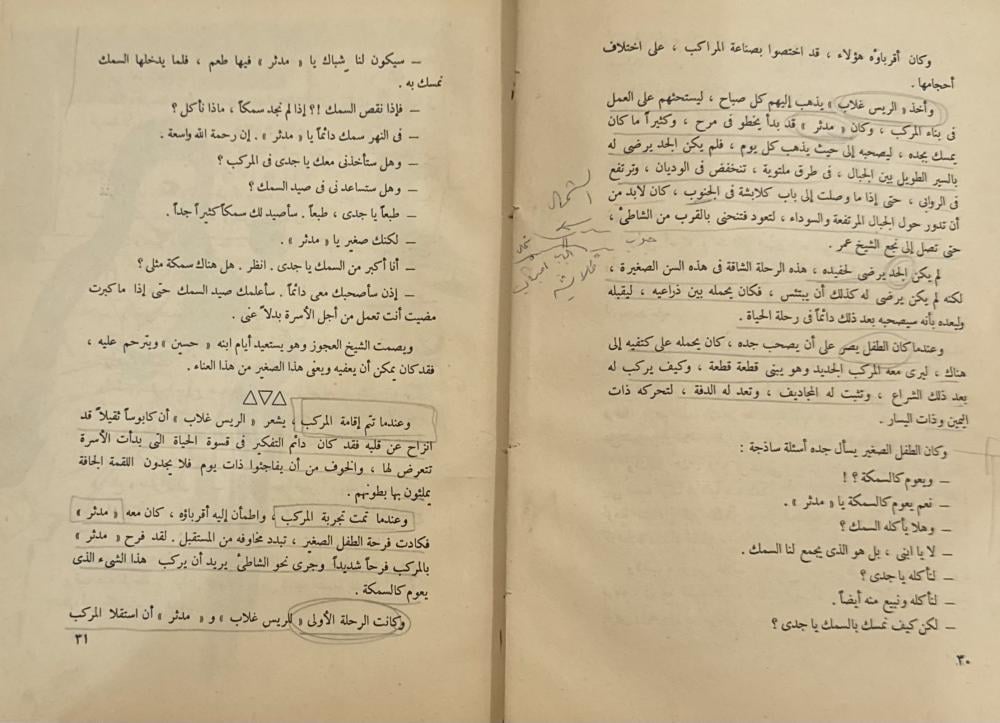 وكان أقرباؤه هؤلاء ، قد اختصوا بصناعة المراكب ، على اختلاف
أحجامها .
وأخذ « الريس غلاب » يذهب إليهم كل صباح ، ليستحثهم على العمل
فى بناء المركب ، وكان « مدثر » قد بدأ يخطو فى مرح ، وكثيراً ما كان
يمسك بجده ، ليصحبه إلى حيث يذهب كل يوم ، فلم يكن الجد يرضى له
بالسير الطويل بين الجبال ، فى طرق ملتوية ، تنخفض فى الوديان ، وترتفع
فى الروابى ، حتى إذا ما وصلت إلى باب كلابشة فى الجنوب ، كان لابد من
أن تدور حول الجبال المرتفعة والسوداء ، لتعود فتنحنى بالقرب من الشاطئ ،
حتى تصل إلى نجع الشيخ عمر .
لم يكن الجد يرضى لحفيده ، هذه الرحلة الشاقة فى هذه السن الصغيرة ،
لكنه لم يكن يرضى له كذلك أن يبتئس ، فكان يحمله بين ذراعيه ، ليقبله
وليعده بأنه سيصحبه بعد ذلك دائماً فى رحلة الحياة .
وعندما كان الطفل يصر على أن يصحب جده ، كان يحمله على كتفيه إلى
هناك ، ليرى معه المركب الجديد وهو يبنى قطعة قطعة ، وكيف يركب له
بعد ذلك الشراع ، وتثبت له المجاديف ، وتعد له الدفة ، لتحركه ذات
اليمين وذات اليسار .
وكان الطفل الصغير يسأل جده أسئلة ساذجة :
– ويعوم كالسمكة ؟ !
– نعم يعوم كالسمكة يا « مدثر » .
– وهلا يأكله السمك ؟
– لا يا ابنى ، بل هو الذى يجمع لنا السمك .
– لنأكله يا جدى ؟
– لنأكله ونبيع منه أيضاً .
– لكن كيف نمسك بالسمك يا جدى ؟
٣٠
الشمال
جنوب
– سيكون لنا شباك يا « مدثر » فيها طعم ، فلما يدخلها السمك
نمسك به .
– فإذا نقص السمك !؟ إذا لم نجد سمكاً ، ماذا نأكل ؟
– فى النهر سمك دائماً يا « مدثر » . إن رحمة الله واسعة .
– وهل ستأخذنى معك يا جدى فى المركب ؟
– وهل ستساعدنى فى صيد السمك ؟
– طبعاً يا جدى ، طبعاً . سأصيد لك سمكاً كثيراً جداً .
– لكنك صغير يا « مدثر » .
– أنا أكبر من السمك يا جدى . انظر . هل هناك سمكة مثلى ؟
– إذن سأصحبك معى دائماً . سأعلمك صيد السمك حتى إذا ما كبرت
مضيت أنت تعمل من أجل الأسرة بدلاً عنى .
ويصمت الشيخ العجوز وهو يستعيد أيام ابنه « حسين » ويترحم عليه ،
فقد كان يمكن أن يعفيه ويعفى هذا الصغير من هذا العناء .
△▽△
وعندما تتم إقامة المركب ، يشعر « الريس غلاب » أن كابوساً ثقيلاً قد
انزاح عن قلبه فقد كان دائم التفكير فى قسوة الحياة التى بدأت الأسرة
تتعرض لها ، والخوف من أن يفاجئوا ذات يوم فلا يجدون اللقمة الجافة
يملئون بها بطونهم .
وعندما تمت تجربة المركب ، واطمأن إليه أقرباؤه ، كان معه « مدثر »
فكادت فرحة الطفل الصغير ، تبدد مخاوفه من المستقبل . لقد فرح « مدثر »
بالمركب فرحاً شديداً وجرى نحو الشاطئ يريد أن يركب هذا الشىء الذى
يعوم كالسمكة .
وكانت الرحلة الأولى « للريس غلاب » و « مدثر » أن استقلا المركب
٣١